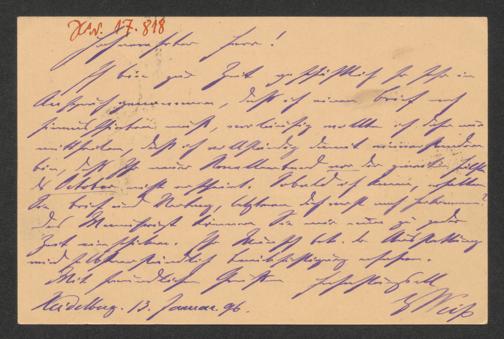 H.I.N. 17.818
Hochverehrter Herr!
Ich bin zur Zeit geschäftlich so sehr in
Anspruch genommen, daß ich einen Brief noch
hinausschieben muß, vorläufig wollte ich Ihnen nur
mittheilen, daß ich vollständig damit einverstanden
bin, daß Ihr neuer Romanband vor der zweiten Hälfte
des October nicht erscheint. Sobald ich kann, erhalten
Sie Brief und
Das Manuscript können Sie mir nun zu jeder
Zeit einschicken. Ihr Wunsch betr. der Ausstattung
wird selbstverständlich Berücksichtigung erfahren.
Mit freundlichen Grüßen hochachtungsvoll
Heidelberg. 13. Januar 96. Weiß